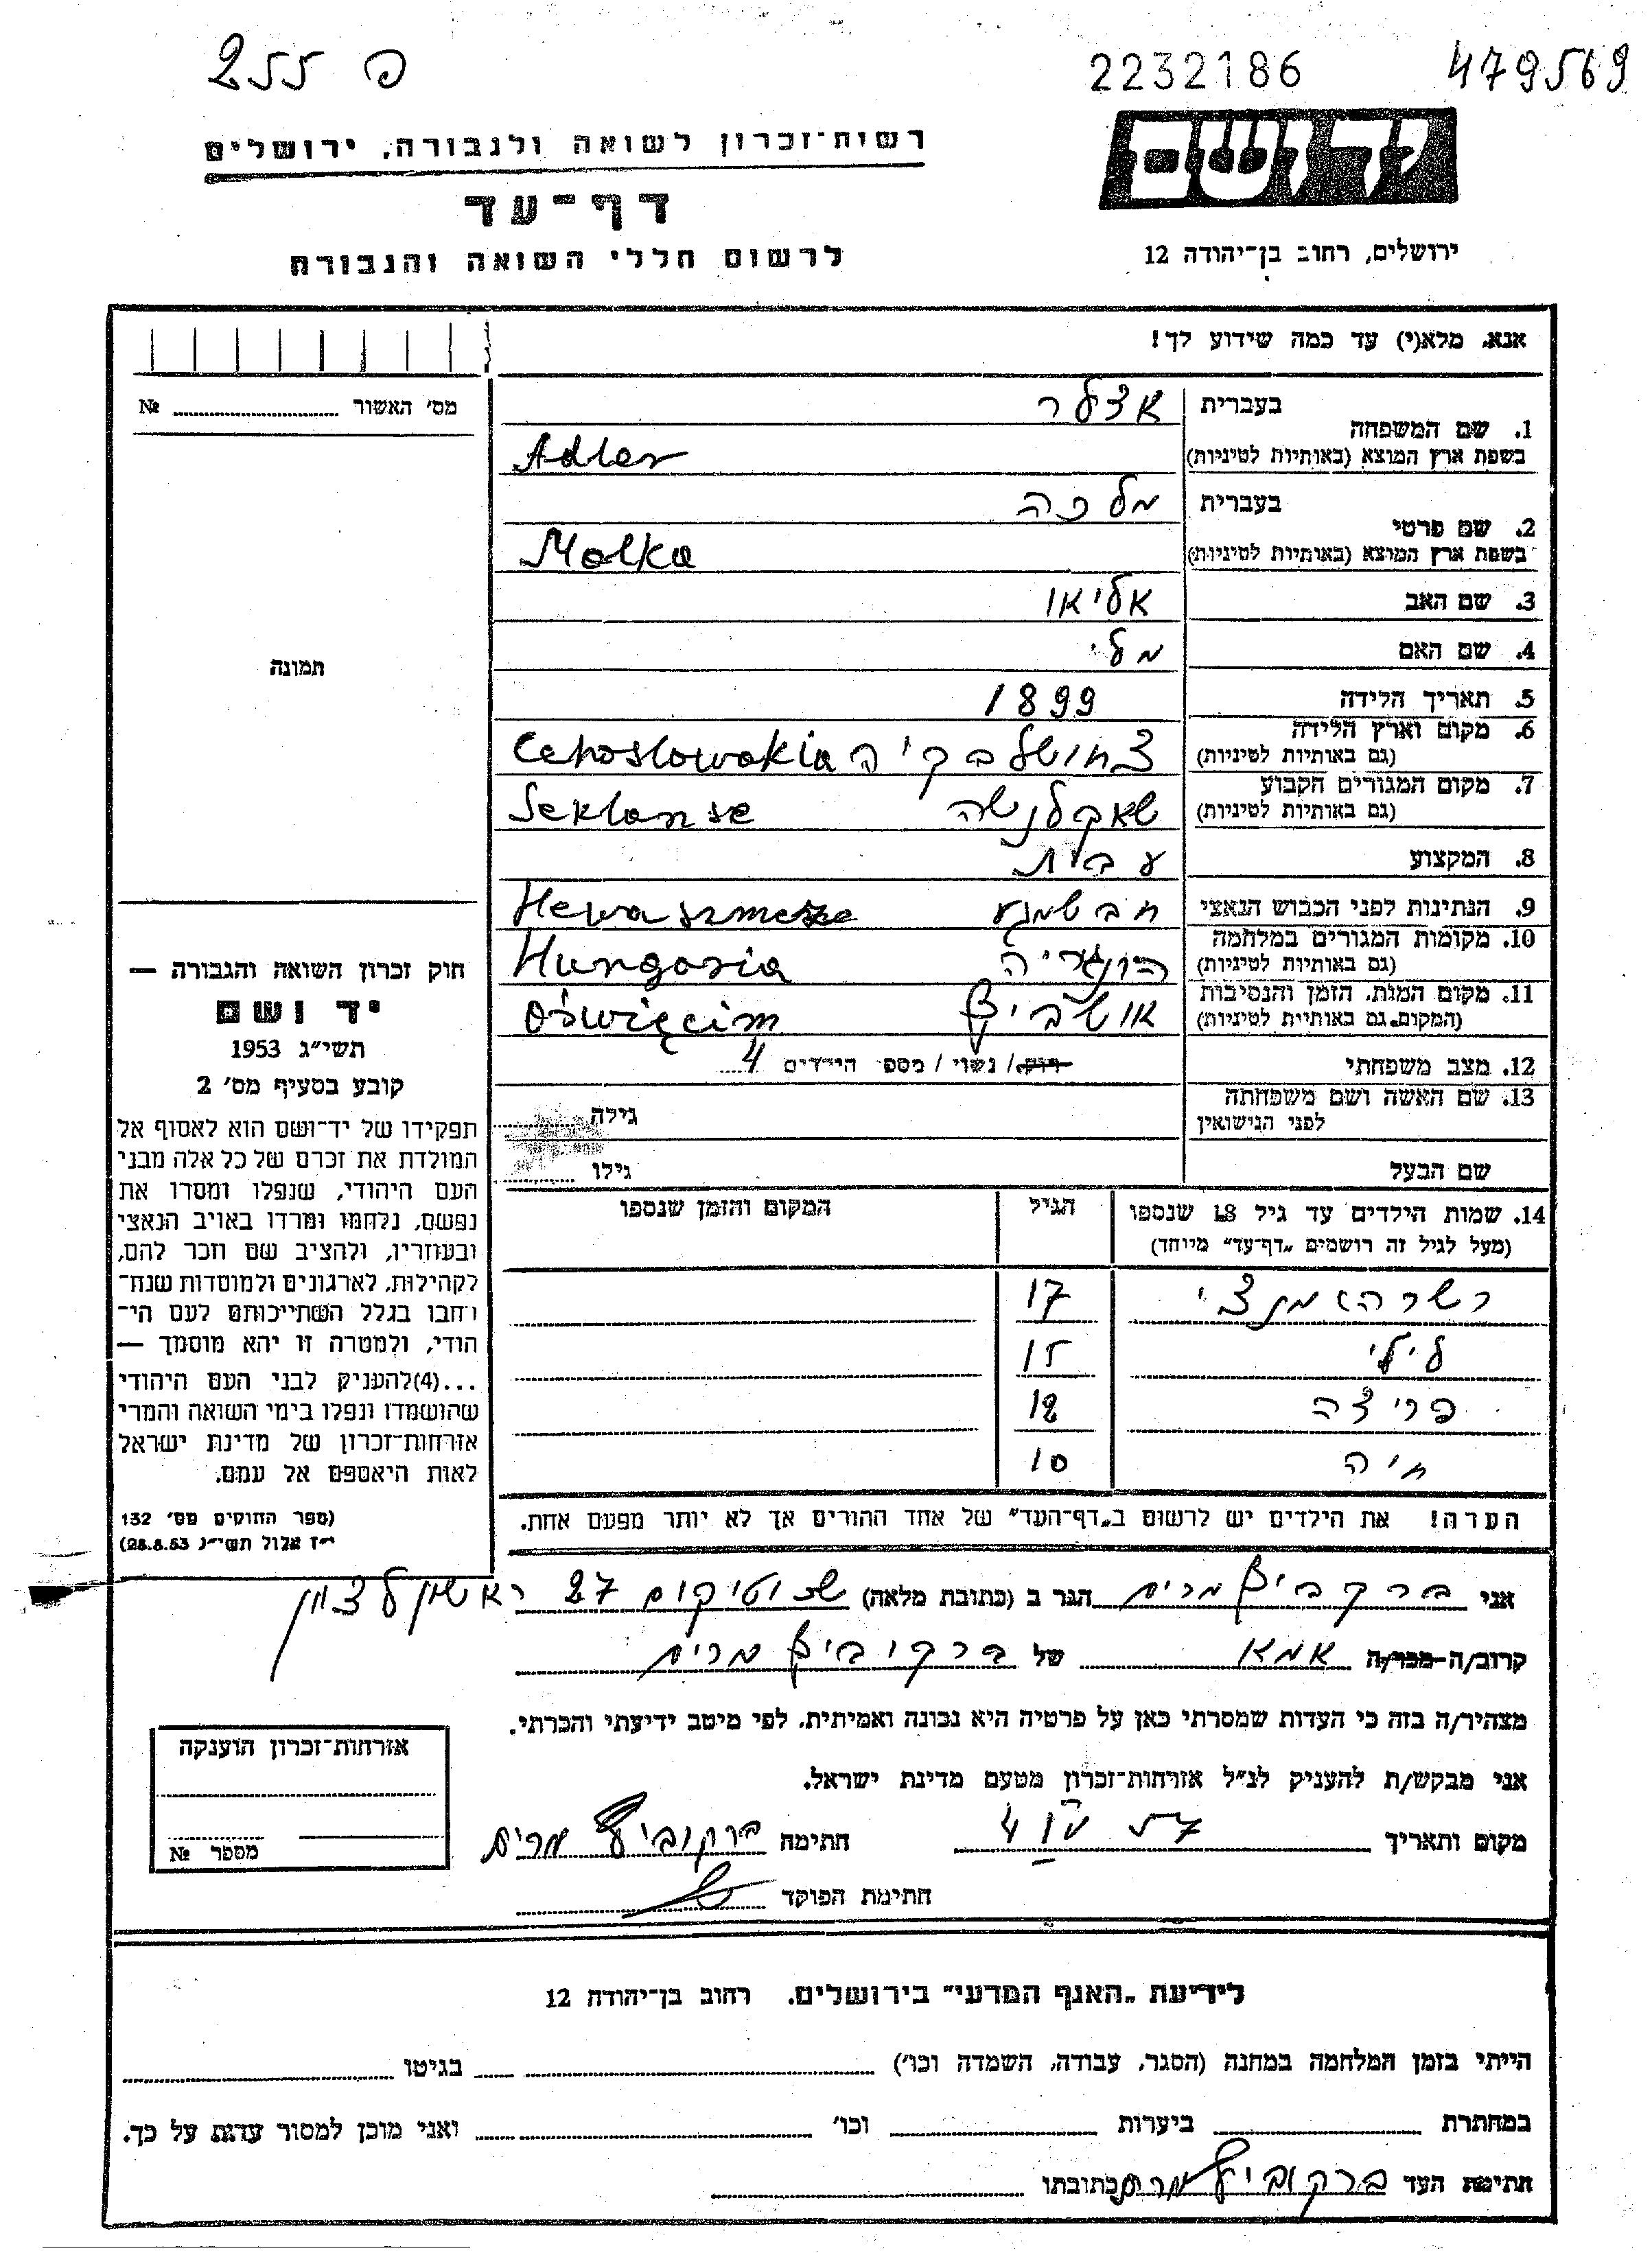 255 פ
2232186
479569
יד ושם
רשות־זכרון לשואה ולגבורה, ירושלים
דף־עד
לרשום חללי השואה והגבורה
ירושלים, רחוב בן־יהודה 12
אנא, מלא(י) עד כמה שידוע לך!
מס׳ האשור № 
1. שם המשפחה
בעברית אדלר
בשפת ארץ המוצא (באותיות לטיניות) Adler
2. שם פרטי
בעברית מלכה
בשפת ארץ המוצא (באותיות לטיניות) Malka
3. שם האב אליאו
4. שם האם מלי
5. תאריך הלידה 1899
6. מקום וארץ הלידה
(גם באותיות לטיניות) צחוסלבקיה Cehoslowakia
7. מקום המגורים הקבוע
(גם באותיות לטיניות) שאקלנשה Seklanse
8. המקצוע
9. הנתינות לפני הכבוש הנאצי
10. מקומות המגורים במלחמה
(גם באותיות לטיניות) הונגריה Hungaria
11. מקום המות, הזמן והנסיבות
(המקום גם באותיות לטיניות) אושביץ Oświęcim
12. מצב משפחתי רוק/ נשוי / מספר הילדים 4
13. שם האשה ושם משפחתה
לפני הנישואין גילה
שם הבעל גילו
14. שמות הילדים עד גיל 18 שנספו
(מעל לגיל זה רושמים „דף־עד״ מיוחד)
הגיל
המקום והזמן שנספו
17
לילי 15
פרידה 12
חיה 10
הערה! את הילדים יש לרשום ב„דף־העד״ של אחד ההורים אך לא יותר מפעם אחת.
תמונה
חוק זכרון השואה והגבורה —
יד ושם
תשי״ג 1953
קובע בסעיף מס׳ 2
תפקידו של יד־ושם הוא לאסוף אל
המולדת את זכרם של כל אלה מבני
העם היהודי, שנפלו ומסרו את
נפשם, נלחמו ומרדו באויב הנאצי
ובעוזריו, ולהציב שם וזכר להם,
לקהילות, לארגונים ולמוסדות שנח־
רחבו בגלל השתייכותם לעם הי־
הודי, ולמטרה זו יהא מוסמך —
...(4)להעניק לבני העם היהודי
שהושמדו ונפלו בימי השואה והמרי
אזרחות־זכרון של מדינת ישראל
לאות היאספם אל עמם.
(ספר החוקים מס׳ 132
י״ז אלול תשי״ג 28.8.53)
אני ברקביץ מרים הגר ב (כתובת מלאה) 27 ראשון לציון
קרוב/ה מכר/ה אמא של ברקוביץ מרים
מצהיר/ה בזה כי העדות שמסרתי כאן על פרטיה היא נכונה ואמיתית, לפי מיטב ידיעתי והכרתי.
אני מבקש/ת להעניק לנ״ל אזרחות־זכרון מטעם מדינת ישראל.
מקום ותאריך חתימה ברקוביץ מרים
חתימת הפוקד
אזרחות־זכרון הוענקה
מספר №
לידיעת „האגף המדעי״ בירושלים. רחוב בן־יהודה 12
הייתי בזמן המלחמה במחנה (הסגר, עבודה, השמדה וכו׳) בגיטו
במחתרת ביערות וכו׳ ואני מוכן למסור עדות על כך.
חתימת העד ברקוביץ מרים כתובתו